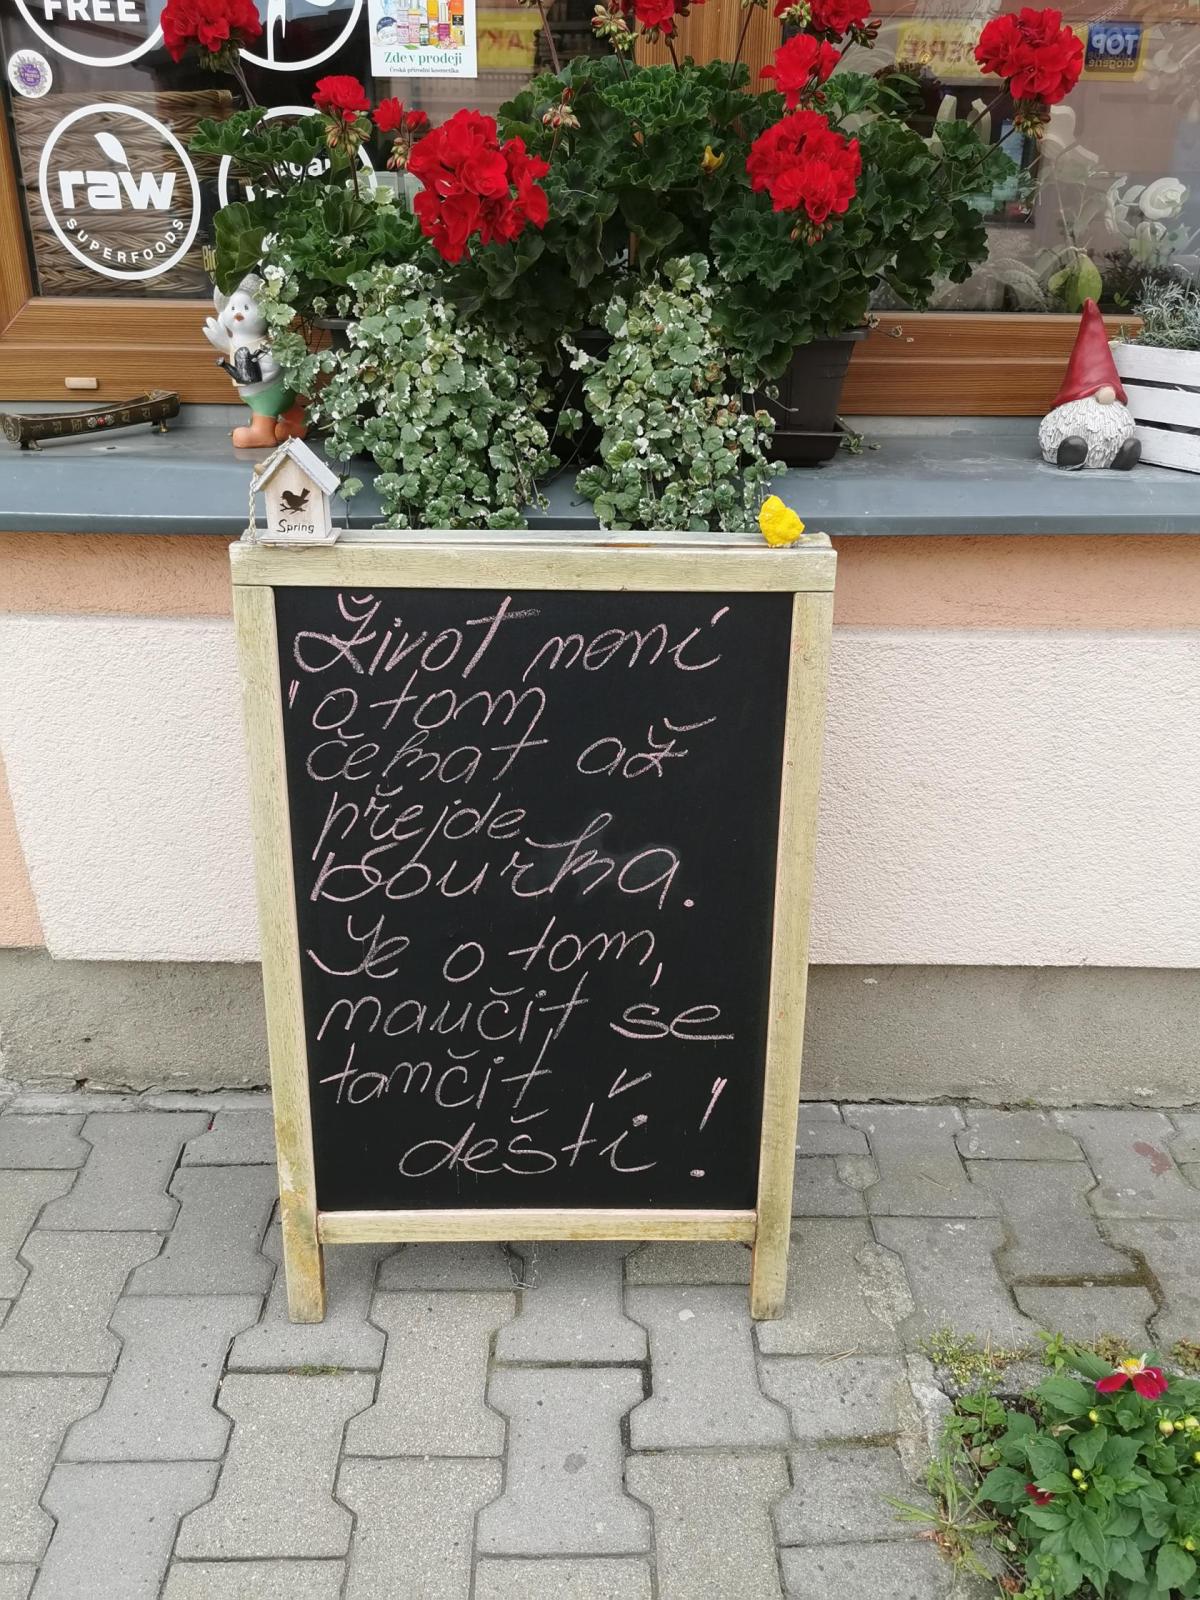 FREE
Zde v prodeji
Česká přírodní kosmetika
raw
SUPERFOODS
TOP
drogerie
Spring
Život není
"o tom
čekat až
přejde
bouřka.
Je o tom,
naučit se
tančit v
dešti!